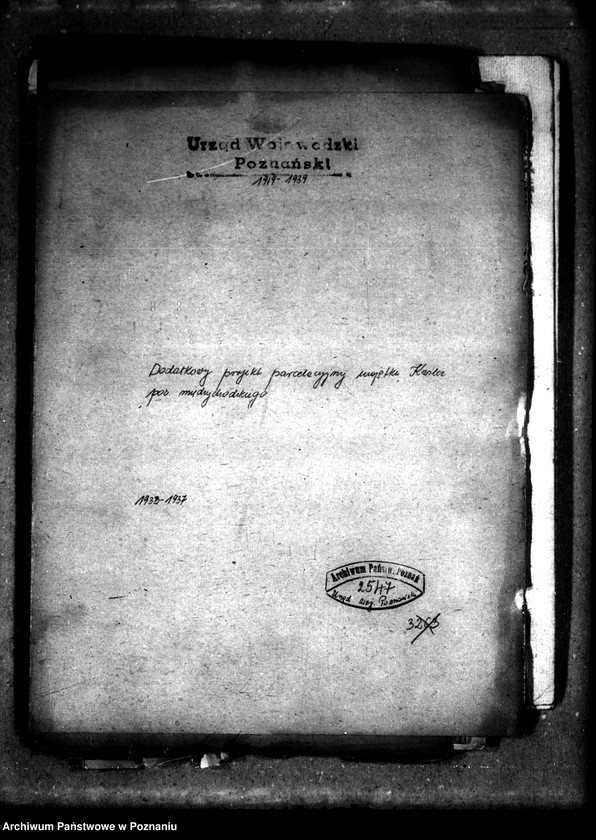 Urząd Wojewódzki
Poznański
1919-1939
Dodatkowy projekt parcelacyjny majątku
pow. międzychodzkiego
1932-1937
Archiwum Państw. Poznań
2547
Urząd Woj. Poznański
Archiwum Państwowe w Poznaniu